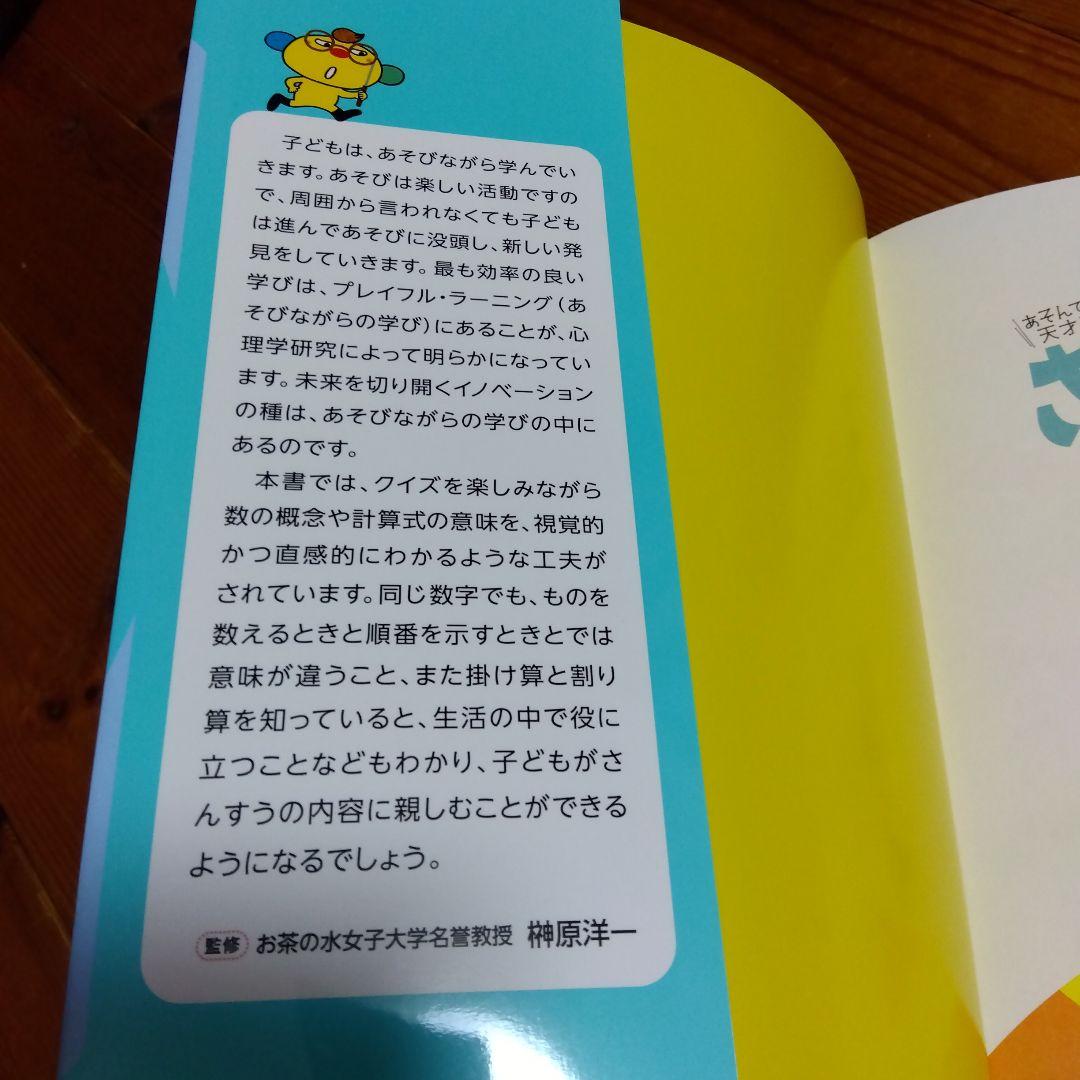 子どもは、あそびながら学んでい
きます。あそびは楽しい活動ですの
で、周囲から言われなくても子ども
は進んであそびに没頭し、新しい発
見をしていきます。最も効率の良い
学びは、プレイフル・ラーニング(あ
そびながらの学び)にあることが、心
理学研究によって明らかになってい
ます。未来を切り開くイノベーション
の種は、あそびながらの学びの中に
あるのです。
本書では、クイズを楽しみながら
数の概念や計算式の意味を、視覚的
かつ直感的にわかるような工夫が
されています。同じ数字でも、ものを
数えるときと順番を示すときとでは
意味が違うこと、また掛け算と割り
算を知っていると、生活の中で役に
立つことなどもわかり、子どもがさ
んすうの内容に親しむことができる
ようになるでしょう。
監修 お茶の水女子大学名誉教授 榊原洋一
あそんで
天才
さ